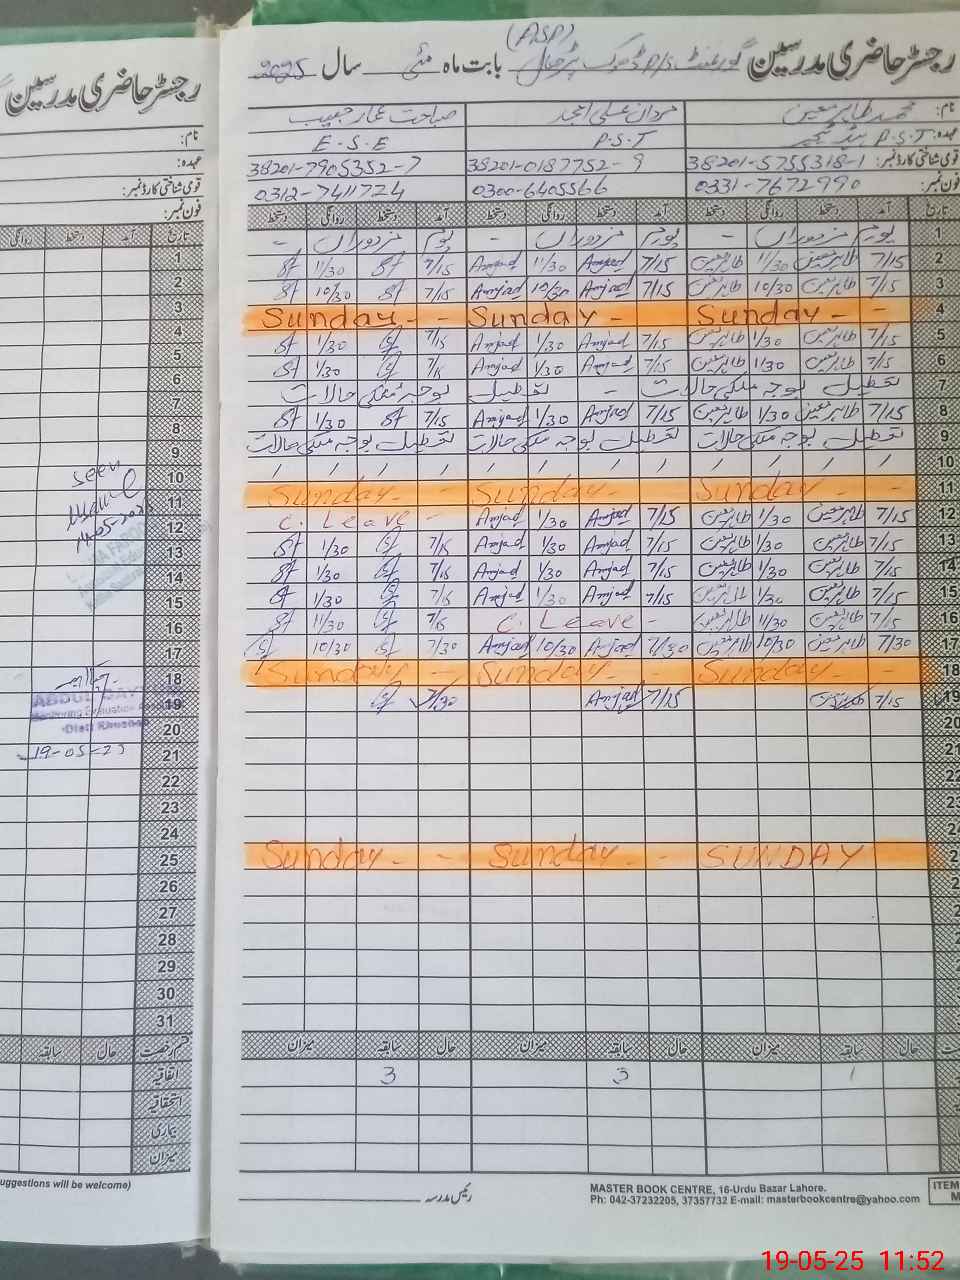 رجسٹر حاضری مدرسین گورنمنٹ P/S ڈھوک پڑحال بابت ماہ مئی سال 2025
(AISP)
نام: محمد طاہر معین مردان علی امجد صباحت عمار حبیب
عہدہ: P.S.T ہیڈ ٹیچر P.S.T E.S.E
قومی شناختی کارڈ نمبر: 38201-5755318-1 38201-0187752-9 38201-7905352-7
فون نمبر: 0331-7672990 0300-6405566 0312-7411724
تاریخ آمد دستخط روانگی دستخط آمد دستخط روانگی دستخط آمد دستخط روانگی دستخط
1 یوم مزدوراں - یوم مزدوراں - یوم مزدوراں -
7/15 طاہر معین 11/30 طاہر معین 7/15 Amjad 11/30 Amjad 7/15 11/30
3 7/15 طاہر معین 10/30 طاہر معین 7/15 Amjad 10/30 Amjad 7/15 10/30
4 Sunday - - Sunday - Sunday - -
5 7/15 طاہر معین 1/30 طاہر معین 7/15 Amjad 1/30 Amjad 7/15 1/30
6 7/15 طاہر معین 1/30 طاہر معین 7/15 Amjad 1/30 Amjad 7/15 1/30
7 تعطیل بوجہ ملکی حالات - تعطیل بوجہ ملکی حالات
8 7/15 طاہر معین 1/30 طاہر معین 7/15 Amjad 1/30 Amjad 7/15 1/30
9 تعطیل بوجہ ملکی حالات تعطیل بوجہ ملکی حالات تعطیل بوجہ ملکی حالات
10 / / / / / / / / / / / /
11 Sunday - Sunday - Sunday - -
12 7/15 طاہر معین 1/30 طاہر معین 7/15 Amjad 1/30 Amjad C. Leave -
13 7/15 طاہر معین 1/30 طاہر معین 7/15 Amjad 1/30 Amjad 7/15 1/30
14 7/15 طاہر معین 1/30 طاہر معین 7/15 Amjad 1/30 Amjad 7/15 1/30
15 7/15 طاہر معین 1/30 طاہر معین 7/15 Amjad 1/30 Amjad 7/15 1/30
16 7/15 طاہر معین 11/30 طاہر معین C. Leave - 7/15 11/30
17 7/30 طاہر معین 10/30 طاہر معین 7/30 Amjad 10/30 Amjad 7/30 10/30
18 Sunday - Sunday - - Sunday - -
19 7/15 طاہر معین 7/15 Amjad 7/30
20
21
22
23
24
Sunday - - Sunday - - SUNDAY
حال سابقہ میزان حال سابقہ میزان حال سابقہ میزان
1 3 3
رئیس مدرسہ
MASTER BOOK CENTRE, 16-Urdu Bazar Lahore.
Ph: 042-37232205, 37357732 E-mail: masterbookcentre@yahoo.com
ITEM
رجسٹر حاضری مدرسین
نام:
عہدہ:
قومی شناختی کارڈ نمبر:
فون نمبر:
تاریخ آمد دستخط روانگی
1
2
3
4
5
6
7
8
9
10
11
12
13
14
15
16
17
18
19
20
21
22
23
24
25
26
27
28
29
30
31
seen
19-05-25
قسم رخصت حال سابقہ میزان
اتفاقیہ
استحقاقیہ
بیماری
میزان
uggestions will be welcome)
19-05-25 11:52